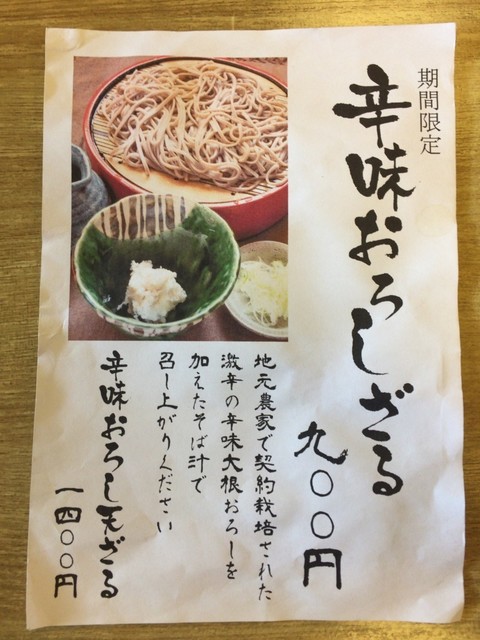 期間限定
辛味おろしざる
九〇〇円
地元農家で契約栽培された
激辛の辛味大根おろしを
加えたそば汁で
召し上がりください
辛味おろし天ざる
一四〇〇円